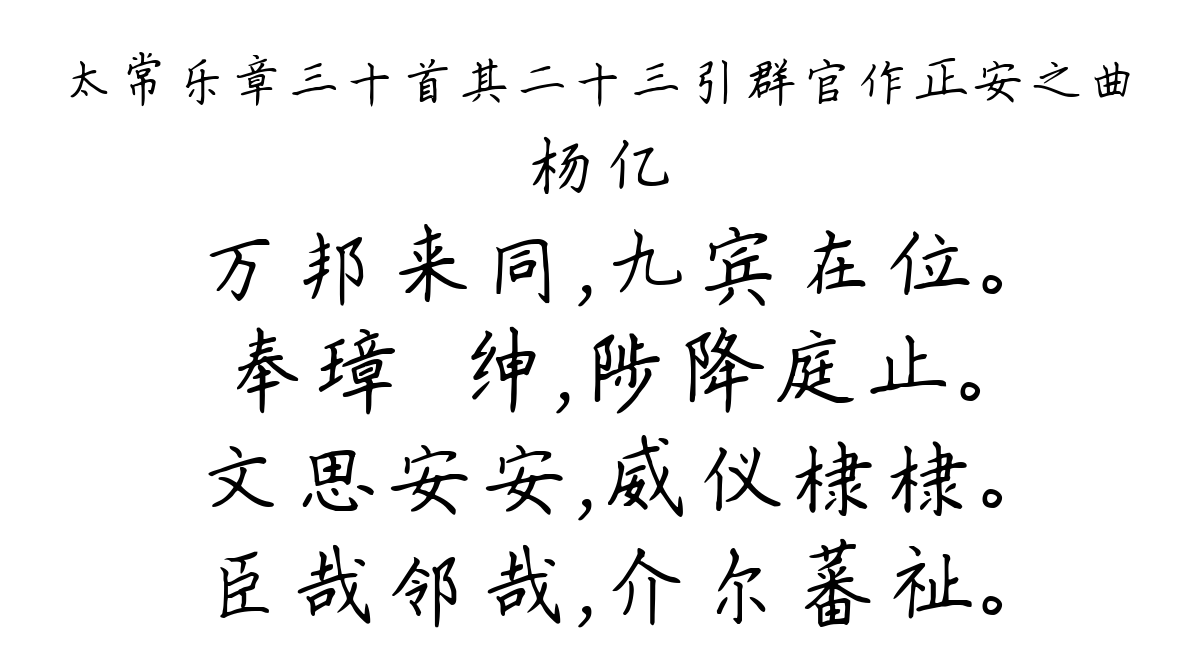 太常乐章三十首其二十三引群官作正安之曲
杨亿
万邦来同,九宾在位。
奉璋 绅,陟降庭止。
文思安安,威仪棣棣。
臣哉邻哉,介尔蕃祉。